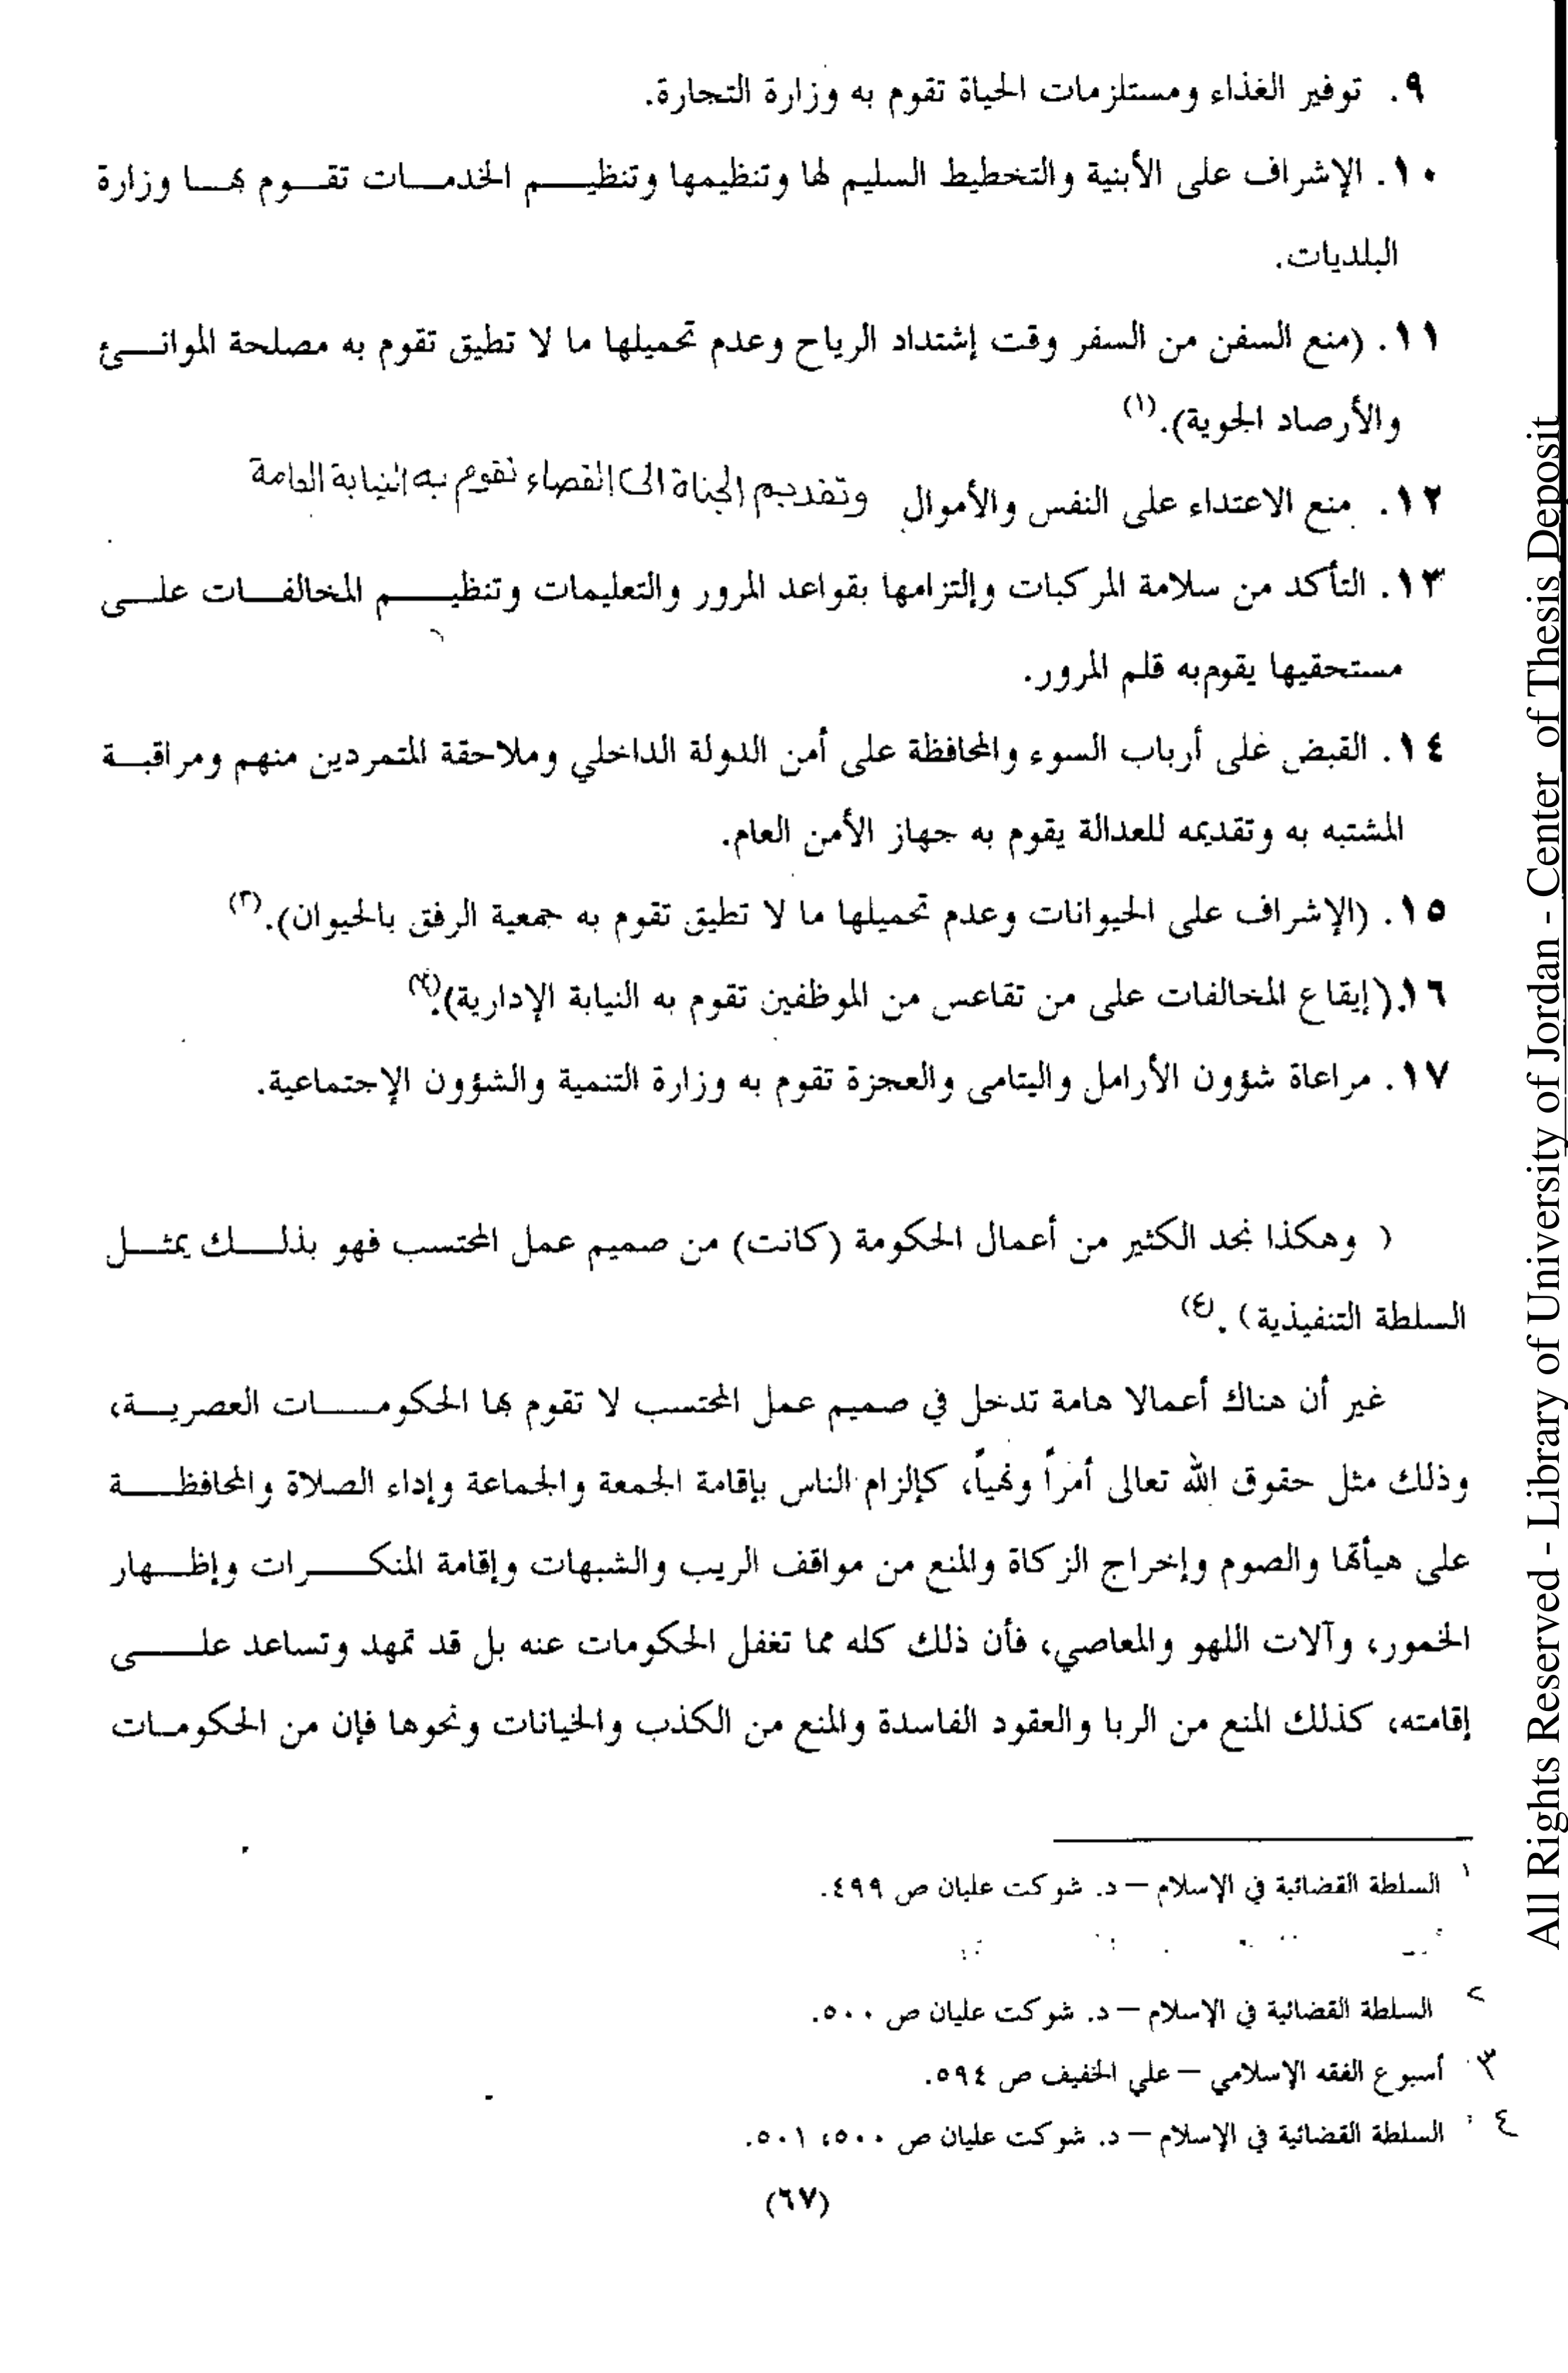 ٩. توفير الغذاء ومستلزمات الحياة تقوم به وزارة التجارة.
١٠. الإشراف على الأبنية والتخطيط السليم لها وتنظيمها وتنظيم الخدمات تقوم بها وزارة
البلديات.
١١. (منع السفن من السفر وقت إشتداد الرياح وعدم تحميلها ما لا تطيق تقوم به مصلحة الموانئ
والأرصاد الجوية).(١)
١٢. منع الاعتداء على النفس والأموال وتقديم الجناة الى القضاء تقوم به النيابة العامة
١٣. التأكد من سلامة المركبات وإلتزامها بقواعد المرور والتعليمات وتنظيم المخالفات على
مستحقيها يقوم به قلم المرور.
١٤. القبض على أرباب السوء والمحافظة على أمن الدولة الداخلي وملاحقة المتمردين منهم ومراقبة
المشتبه به وتقديمه للعدالة يقوم به جهاز الأمن العام.
١٥. (الإشراف على الحيوانات وعدم تحميلها ما لا تطيق تقوم به جمعية الرفق بالحيوان).(٢)
١٦.(إيقاع المخالفات على من تقاعس من الموظفين تقوم به النيابة الإدارية).(٣)
١٧. مراعاة شؤون الأرامل واليتامى والعجزة تقوم به وزارة التنمية والشؤون الإجتماعية.
( وهكذا نجد الكثير من أعمال الحكومة (كانت) من صميم عمل المحتسب فهو بذلك يمثل
السلطة التنفيذية) .(٤)
غير أن هناك أعمالا هامة تدخل في صميم عمل المحتسب لا تقوم بها الحكومات العصرية،
وذلك مثل حقوق الله تعالى أمراً ونهياً، كإلزام الناس بإقامة الجمعة والجماعة وإداء الصلاة والمحافظة
على هيأتها والصوم وإخراج الزكاة والمنع من مواقف الريب والشبهات وإقامة المنكرات وإظهار
الخمور، وآلات اللهو والمعاصي، فأن ذلك كله مما تغفل الحكومات عنه بل قد تمهد وتساعد على
إقامته، كذلك المنع من الربا والعقود الفاسدة والمنع من الكذب والخيانات ونحوها فإن من الحكومات
١ السلطة القضائية في الإسلام – د. شوكت عليان ص ٤٩٩.
٢ السلطة القضائية في الإسلام – د. شوكت عليان ص ٥٠٠.
٣ أسبوع الفقه الإسلامي – علي الخفيف ص ٥٩٤.
٤ السلطة القضائية في الإسلام – د. شوكت عليان ص ٥٠٠، ٥٠١.
(٦٧)
All Rights Reserved - Library of University of Jordan - Center of Thesis Deposit